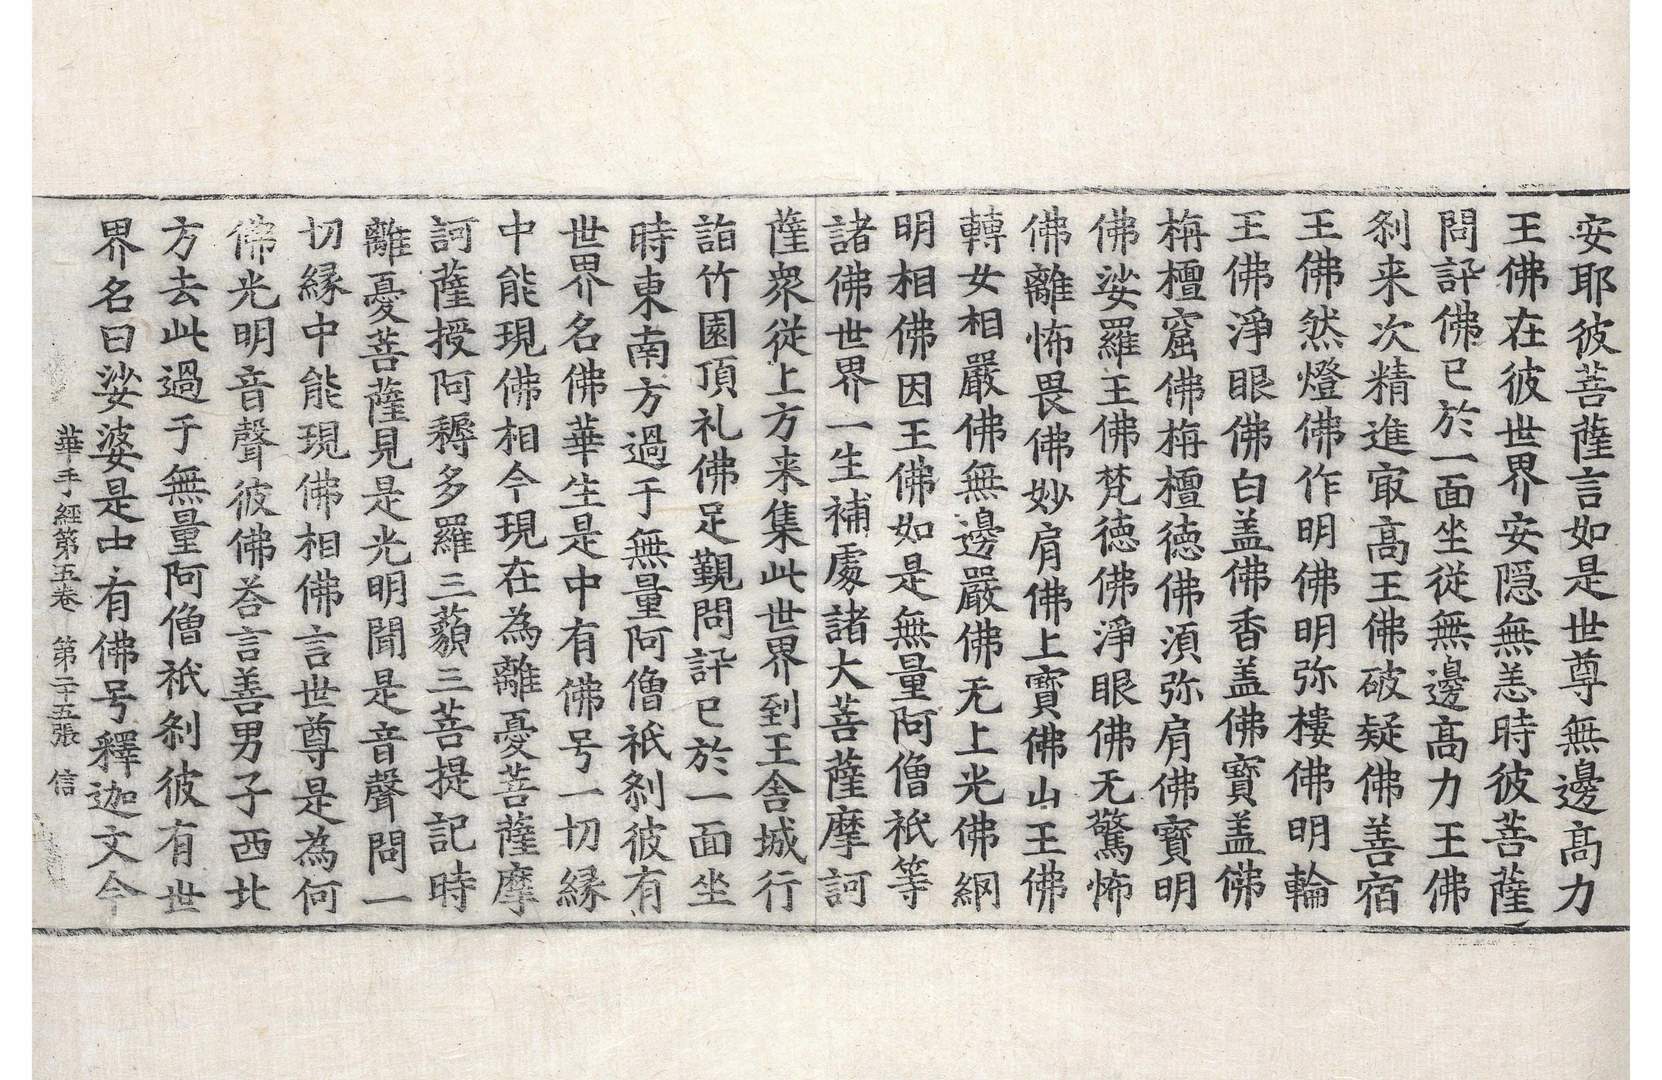 安耶彼菩薩言如是世尊無邊髙力
王佛在彼世界安隱無恙時彼菩薩
問訊佛已於一面坐從無邊髙力王佛
刹来次精進㝡髙王佛破疑佛善宿
王佛然燈佛作明佛明弥樓佛明輪
王佛淨眼佛白盖佛香盖佛寳盖佛
栴檀窟佛栴檀徳佛湏弥肩佛寳明
佛娑羅王佛梵徳佛淨眼佛无驚怖
佛離怖畏佛妙肩佛上寳佛山王佛
轉女相嚴佛無邊嚴佛无上光佛網
明相佛因王佛如是無量阿僧祇等
諸佛世界一生補處諸大菩薩摩訶
薩衆從上方来集此世界到王舎城行
詣竹園頂礼佛足觐問訊已於一面坐
時東南方過于無量阿僧祇刹彼有
世界名佛華生是中有佛号一切縁
中能現佛相今現在為離憂菩薩摩
訶薩授阿耨多羅三藐三菩提記時
離憂菩薩見是光明聞是音聲問一
切縁中能現佛相佛言世尊是為何
佛光明音聲彼佛荅言善男子西北
方去此過于無量阿僧祇刹彼有世
界名曰娑婆是中有佛号釋迦文今
華手經第五卷　第二十五張　信